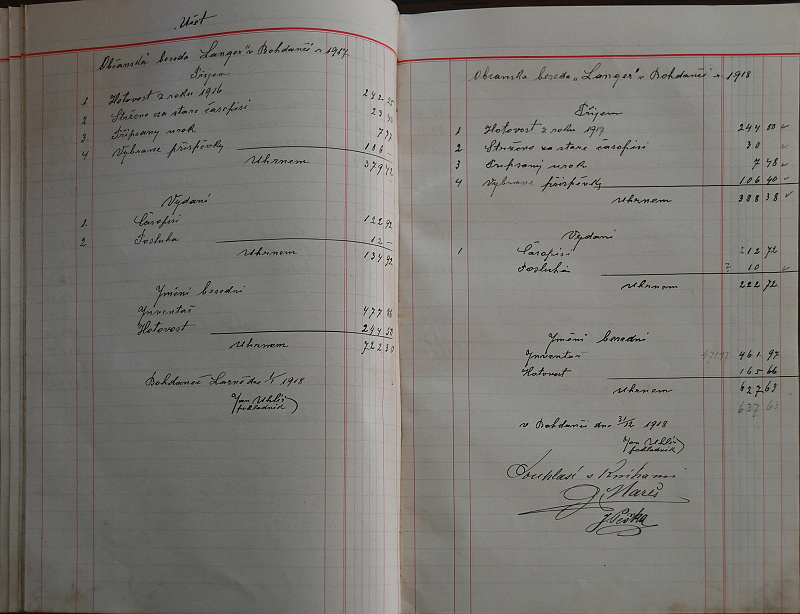 Účet
Občanská beseda "Langer" v Bohdanči r. 1917
Příjem
1 Hotovost z roku 1916 242 25
2 Strženo za staré časopisi 23
3. Připsaný urok 7 77
4 Vybrane příspěvky 106 —
Uhrnem 379 42
Vydaní
1. Časopisi 122 92
2 Posluha 12 —
Uhrnem 134 92
Jmění besedni
Inventář 477
Hotovost 244 50
Uhrnem 722 30
Bohdaneč Lázně dne 1/1 1918
Jan Uhlíř
pokladník
Občanska beseda "Langer" v Bohdanči r. 1918
Příjem
1 Hotovost z roku 1917 244 50
2 Strženo za staré časopisi 30
3 Pripsaný urok 7 48
4 Vybrane příspěvky 106 40
Uhrnem 388 38
Vydani
1 Časopisi 212 72
2 Posluha 10
Uhrnem 222 72
Jmění besedni
Inventář 461 97
Hotovost 165 66
Uhrnem 627 63
637 63
v Bohdanči dne 31/12 1918
Jan Uhlíř
pokladník
Souhlasí s knihami
J. Mareš
J. Pěška